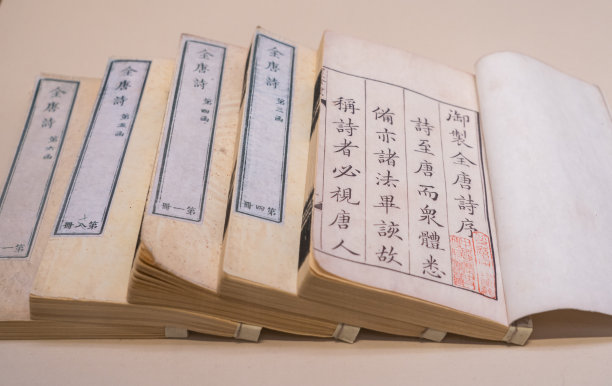 御製全唐詩序
詩至唐而衆體悉
備亦諸法畢該故
稱詩者必視唐人
全唐詩 第三函
第四冊
全唐詩 第四函
第一冊
全唐詩 第五函
第八冊
全唐詩 第六函
第一